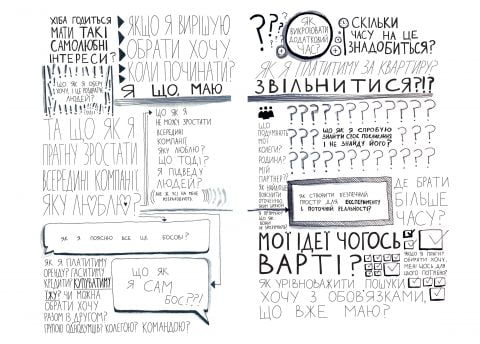 ХІБА ГОДИТЬСЯ
МАТИ ТАКІ
САМОЛЮБНІ
ІНТЕРЕСИ?
ЩО ЯК Я ОБЕРУ
ХОЧУ, І ЦЕ
ЛЮДЕЙ?
ЯКЩО Я ВИРІШУ
ОБРАТИ ХОЧУ,
КОЛИ ПОЧИНАТИ?
Я ЩО, МАЮ
ТА ЩО ЯК Я
ПРАГНУ ЗРОСТАТИ
ВСЕРЕДИНІ КОМПАНІЇ
ЯКУ ЛЮБЛЮ?
ЩО ЯК Я
НЕ МОЖУ ЗРОСТАТИ
ВСЕРЕДИНІ
КОМПАНІЇ
ЯКУ ЛЮБЛЮ?
ЩО ТОДІ?
Я ПІДВЕДУ
ЛЮДЕЙ?
ЯК Я ПОЯСНЮ ВСЕ ЦЕ БОСОВІ?
ЯК Я ПЛАТИТИМУ
ОРЕНДУ? ГАСИТИМУ
КРЕДИТИ? КУПУВАТИМУ
ЇЖУ? ЧИ МОЖНА
ОБРАТИ ХОЧУ
РАЗОМ ІЗ ДРУГОМ?
ГРУПОЮ ОДНОДУМЦІВ? КОЛЕГОЮ? КОМАНДОЮ?
ЩО ЯК
Я САМ
БОС??!
ЯК
ВИКРОЮВАТИ
ДОДАТКОВИЙ
ЧАС?
СКІЛЬКИ
ЧАСУ НА ЦЕ
ЗНАДОБИТЬСЯ?
ЯК Я ПЛАТИТИМУ ЗА КВАРТИРУ?
ЗВІЛЬНИТИСЯ?!?
ЩО
ПОДУМАЮТЬ
МОЇ
КОЛЕГИ?
РОДИНА?
МІЙ
ПАРТНЕР?
ЩО ЯК Я СПРОБУЮ
ЗНАЙТИ СВОЄ ПОКЛИКАННЯ
І НЕ ЗНАЙДУ ЙОГО?
ЯК СТВОРИТИ БЕЗПЕЧНИЙ
ПРОСТІР ДЛЯ ЕКСПЕРИМЕНТУ
І ПОТОЧНІЙ РЕАЛЬНОСТІ?
ДЕ БРАТИ
БІЛЬШЕ
ЧАСУ?
МОЇ ІДЕЇ ЧОГОСЬ
ВАРТІ?
ЯКЩО Я
ОБРАТИ ХОЧУ,
ДЛЯ
ЦЬОГО
ЯК УРІВНОВАЖИТИ ПОШУКИ
ХОЧУ З ОБОВ'ЯЗКАМИ,
ЩО ВЖЕ МАЮ?